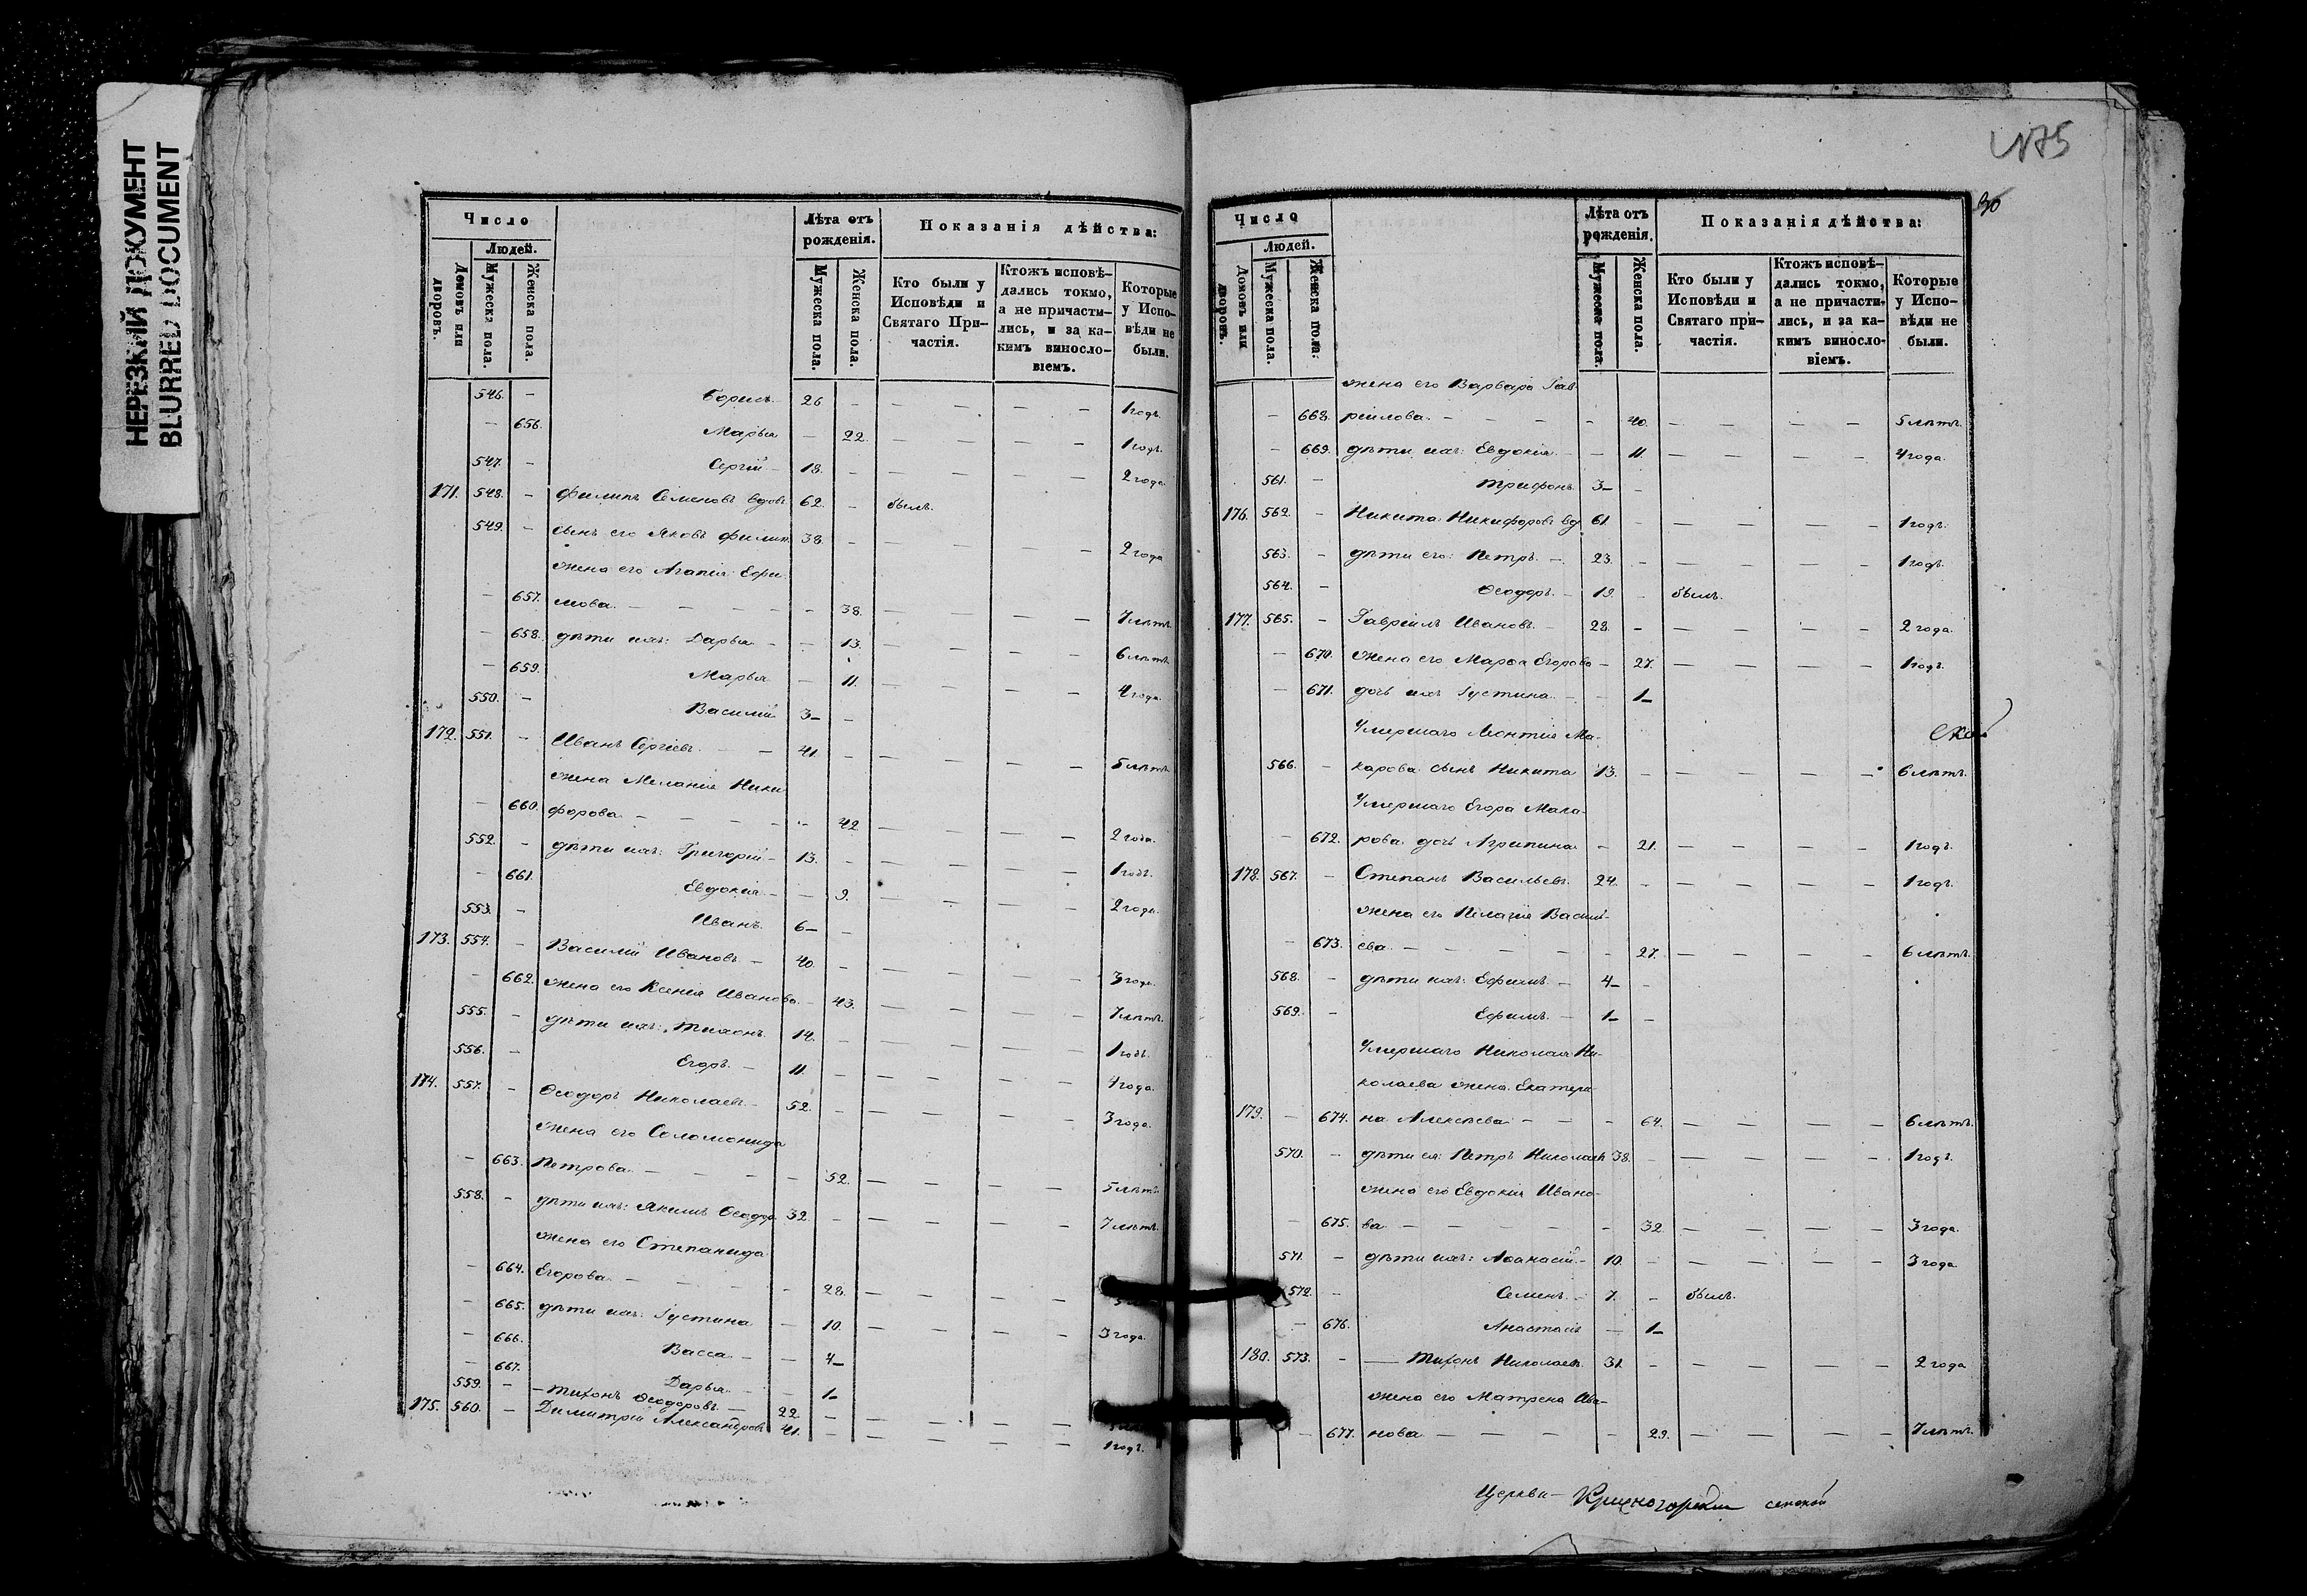 НЕРЕЗКИЙ ДОКУМЕНТ
BLURRED DOCUMENT
Число
Людей.
Домовъ или дворовъ.
Мужеска пола.
Женска пола.
Лѣта отъ рожденія.
Мужеска пола.
Женска пола.
Показанія дѣйства:
Кто были у Исповѣди и Святаго При-частія.
Ктожъ исповѣ-дались токмо, а не причасти-лись, и за ка-кимъ винносло-віемъ.
Которые у Испо-вѣди не были.
546. - Борисъ 26 - - - - - 1 годъ.
- 656. Марья - 22. - - - - 1 годъ.
547. - Сергій - 18. - - - - - 2 года
171. 548. - Филипъ Семеновъ вдов. 62. - былъ.
549. - сынъ его Яковъ Филип. 38. - - - - - 2 года
жена его Агапія Ефи-
- 657. мова. - - - - - 38. - - - - 7 лѣтъ.
- 658. дѣти ихъ: Дарья - - 13. - - - - 6 лѣтъ.
- 659. Марья - 11. - - - - 4 года.
550. - Василій 3- -
172. 551. - Иванъ Сергіевъ. - - 41. - - - - - 5 лѣтъ.
жена Меланія Ники-
- 660. форова - - - - - 42 - - - - 2 года.
552. - дѣти ихъ: Григорій - 13. - - - - - 1 годъ.
- 661. Евдокія - - 9. - - - - 2 года.
553. - Иванъ. 6- -
173. 554. - Василій Ивановъ - 40. - - - - - 3 года.
- 662. жена его Ксенія Иванова - 43. - - - - 7 лѣтъ.
555. - дѣти ихъ: Тихонъ. 14. - - - - - 1 годъ.
556. - Егоръ. - 11. - - - - - 4 года.
174. 557. - Ѳеодоръ Николаевъ - 52. - - - - - 3 года.
жена его Соломонида
- 663. Петрова - - - - - 52. - - - - 5 лѣтъ.
558. - дѣти ихъ: Якимъ Ѳеодор. 32. - - - - - 7 лѣтъ.
жена его Степанида
- 664. Егорова - - - - - 28. - - - -
- 665. дѣти ихъ: Іустина - 10. - - - - 3 года.
- 666. Васса - - 4-
- 667. Дарья - - 1-
559. - - Тихонъ Ѳеодоровъ - 22. - - - - -
175. 560. - Димитрій Александровъ 41. - - - - - 1 годъ.
№75
Число
Людей.
Домовъ или дворовъ.
Мужеска пола.
Женска пола.
Лѣта отъ рожденія.
Мужеска пола.
Женска пола.
Показанія дѣйства:
Кто были у Исповѣди и Святаго при-частія.
Ктожъ исповѣ-дались токмо, а не причасти-лись, и за ка-кимъ винносло-віемъ.
Которые у Испо-вѣди не были.
жена его Варвара Гав-
- 668. ріилова - - - - - 40. - - - - 5 лѣтъ.
- 669. дѣти ихъ: Евдокія - - 11. - - - - 4 года.
561. - Трифонъ 3- -
176. 562. - Никита Никифоровъ вд. 61. - - - - - 1 годъ.
563. - дѣти его: Петръ. - 23. - - - - - 1 годъ.
564. - Ѳеодоръ. - 19. - былъ.
177. 565. - Гавріилъ Ивановъ. - 28. - - - - - 2 года.
- 670. жена его Марѳа Егорова - 27. - - - - 1 годъ.
- 671. дочь ихъ Іустина - - 1-
Умершаго Леонтія Ма-
566. - карова сынъ Никита 13. - - - - - 6 лѣтъ.
Умершаго Егора Мака-
- 672. рова дочь Агрипина - 21. - - - - 1 годъ.
178. 567. - Степанъ Васильевъ 24. - - - - - 1 годъ.
жена его Пелагія Васил-
- 673. ева - - - - - 27. - - - - 6 лѣтъ.
568. - дѣти ихъ: Ефимъ - 4- -
569. - Ефимъ. - 1- -
Умершаго Николая Ни-
колаева жена Екатери-
179. - 674. на Алексѣева - - - 64. - - - - 6 лѣтъ.
570. - дѣти ея: Петръ Николаевъ 38. - - - - - 1 годъ.
жена его Евдокія Ивано-
- 675. ва - - - - - 32 - - - - 3 года.
571. - дѣти ихъ: Аѳанасій - 10. - - - - - 3 года
572. - Семенъ. - 7. - былъ.
- 676. Анастасія - 1-
180. 573. - - Тихонъ Николаевъ. 31. - - - - - 2 года
жена его Матрена Ива-
- 677. нова - - - - - 29. - - - - 7 лѣтъ.
Церкви -